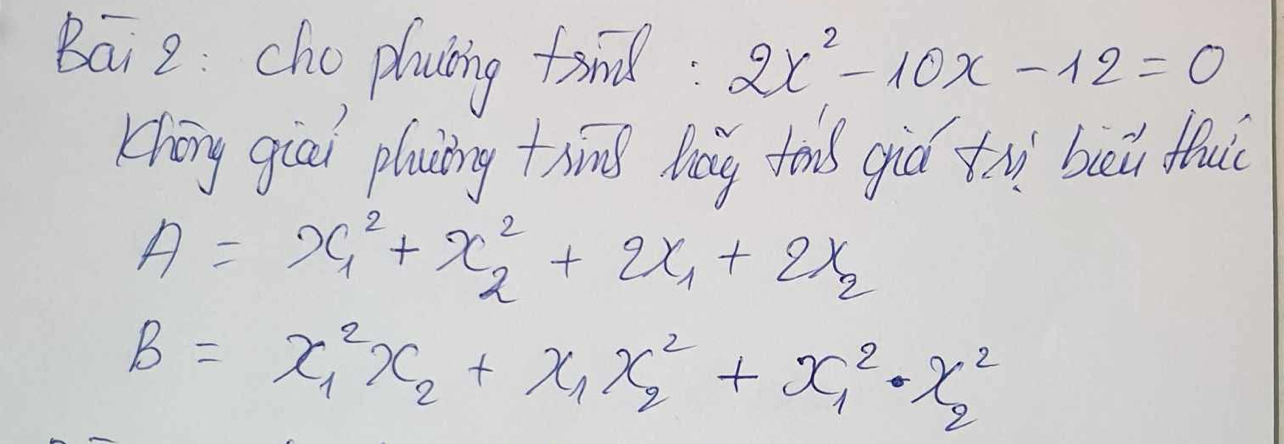 Bài 2: cho phương trình : 2x² - 10x - 12 = 0
Không giải phương trình hãy tính giá trị biểu thức
A = x₁² + x₂² + 2x₁ + 2x₂
B = x₁²x₂ + x₁x₂² + x₁² . x₂²